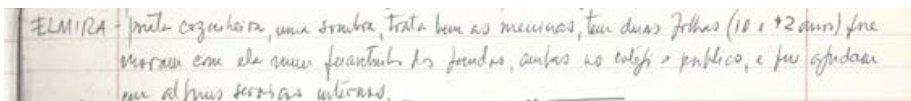 ELMIRA - preta cozinheira, uma sombra, trata bem as meninas, tem duas filhas (10 e 12 anos) que
moram com ela num quartinho dos fundos, ambas no colégio público, e que ajudam
em alguns serviços internos.